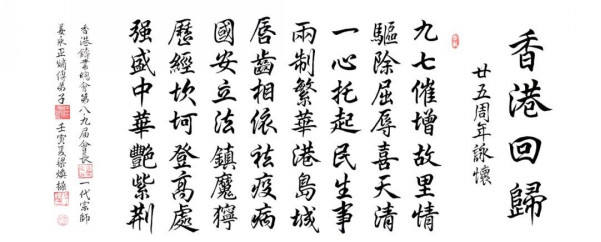 香港回歸
廿五周年詠懷
九七催增故里情
驅除屈辱喜天清
一心托起民生事
兩制繁華港島城
唇齒相依祛疫病
國安立法鎮魔獰
歷經坎坷登高處
强盛中華艷紫荆
香港鑄業總會第八九届會長 一代宗師
姜永正嫡傳弟子 壬寅夏梁